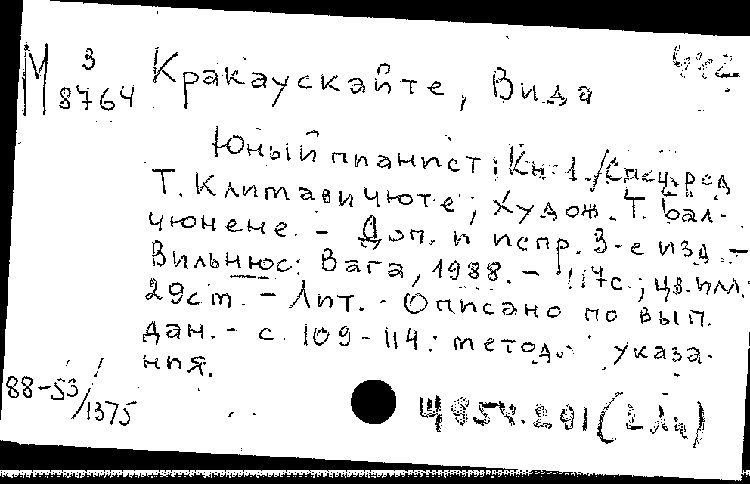 М 3
8764
Кракаускайте, Вида
442
Юный пианист: Кн. 1. / Спец. ред
Т. Климавичюте; Худож. Т. Бал-
чюнене. - Доп. и испр. 3-е изд. -
Вильнюс: Вага, 1988. - 117с.; цв. илл.;
29cm. - Лит. - Описано по вып.
дан. - с. 109-114: метод. указа-
ния.
88-53/1375
Щ954.291(2Ли)